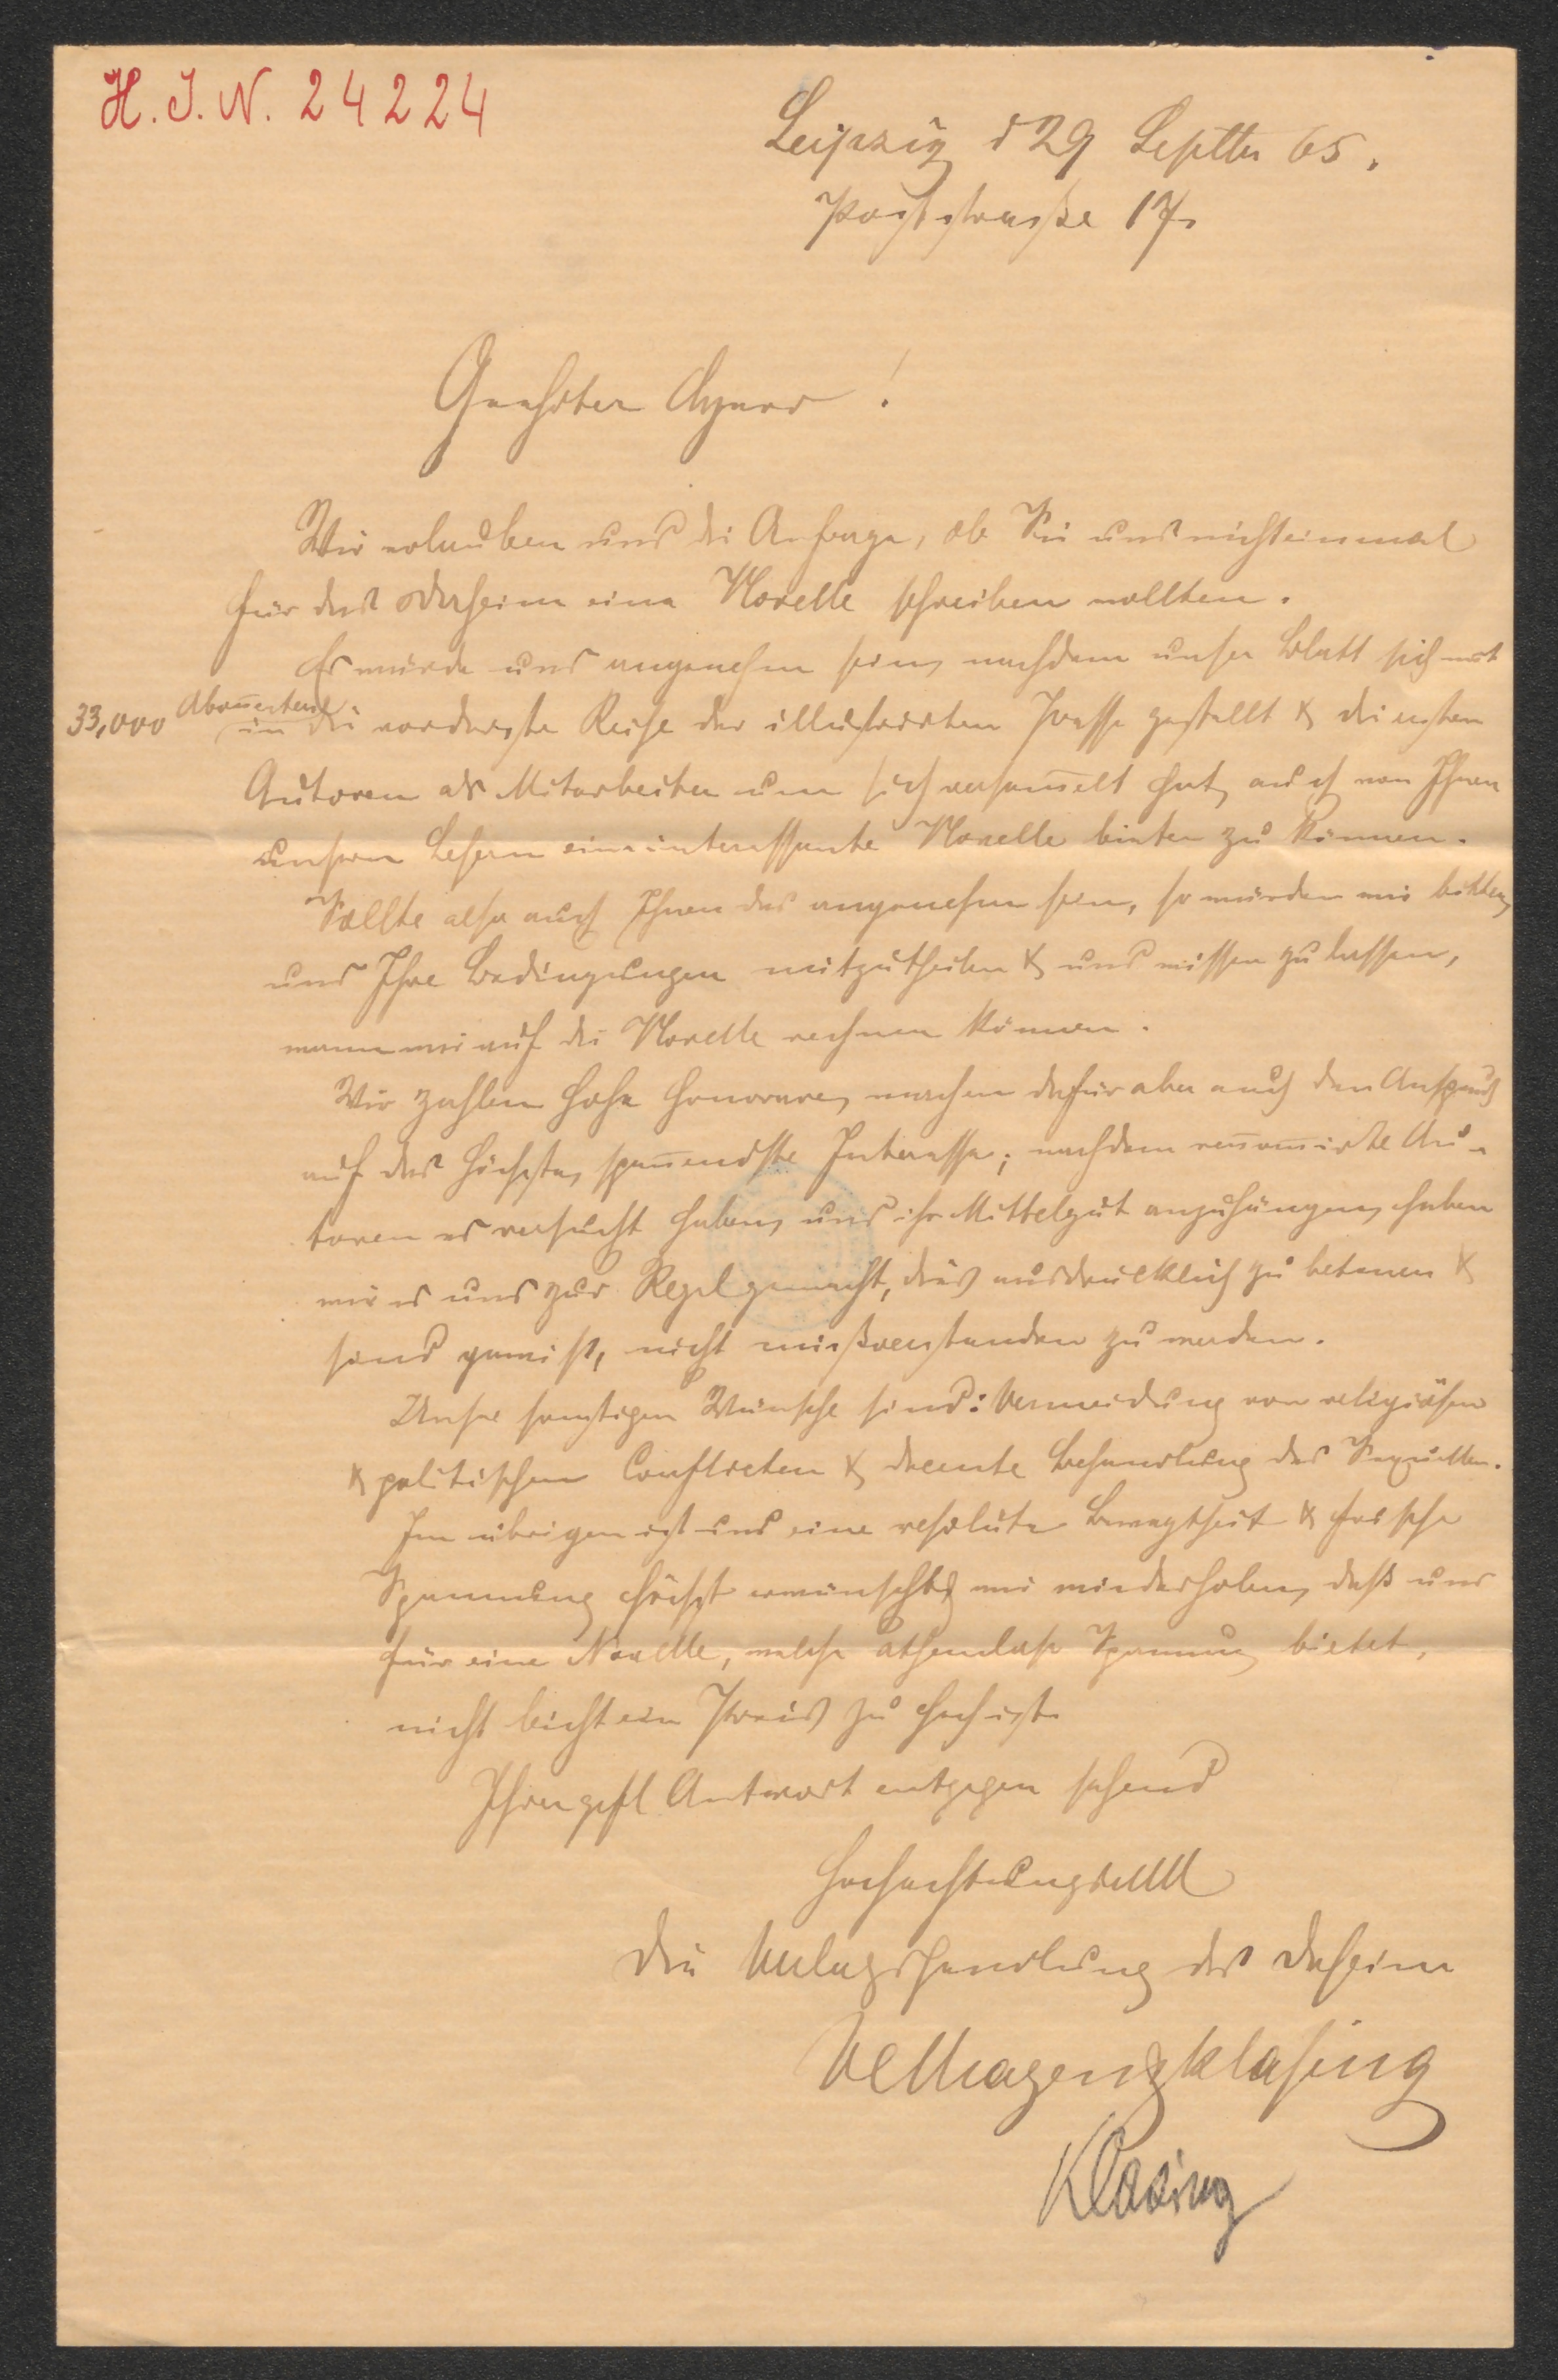 H. I. N. 24224
Leipzig d 29 Septbr 65.
Poststraße 17.
Geehrter Herr!
Wir erlauben uns die Anfrage, ob Sie uns nicht einmal
für das Daheim eine Novelle schreiben wollten.
Es würde uns angenehm sein, nachdem unser Blatt sich mit
33,000 Aboñenten in die vorderste Reihe der illustrirten Presse gestellt & die ersten
Autoren als Mitarbeiter um sich versam̄elt hat, auch von Ihnen
unsern Lesern eine interessante Novelle bieten zu können.
Sollte also auch Ihnen das angenehm sein, so würden wir bitten,
uns Ihre Bedingungen mitzutheilen & uns wissen zu lassen,
wann wir auf die Novelle rechnen können.
Wir zahlen hohe Honorare, machen dafür aber auch den Anspruch
auf das höchste, spañendste Interesse; nachdem reñom̄irte Au-
toren es versucht haben, uns ihr Mittelgut anzuhängen, haben
wir es uns zur Regel gemacht, dies ausdrücklich zu betonen &
sind gewiß, nicht mißverstanden zu werden.
Unsre sonstigen Wünsche sind: Vermeidung von religiösen
& politischen Conflicten & decente Behandlung des Sexuellen.
Im übrigen ist uns eine resolute Bewegtheit & frische
Spannung höchst erwünscht & wir wiederholen, daß uns
für eine Novelle, welche athemlose Spannung bietet,
nicht leicht ein Preis zu hoch ist.
Ihrer gefl. Antwort entgegen sehend
Hochachtungsvoll
Die Verlagshandlung des Daheim
Velhagen & Klasing
Klasing